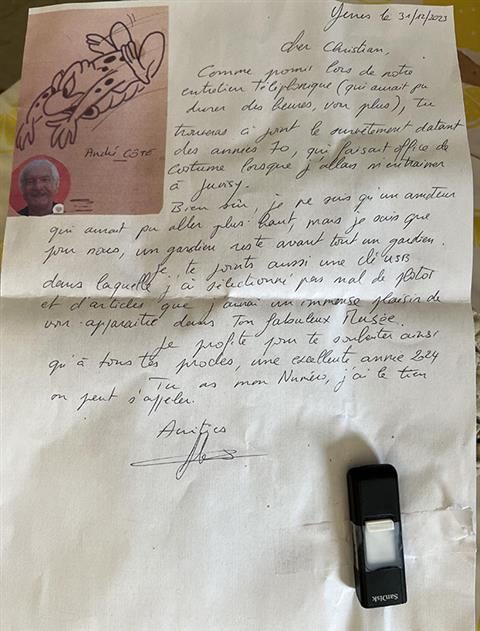 Yerres le 31/12/2023
Cher Christian,
Comme promis lors de notre
entretien téléphonique (qui aurait pu
durer des heures, voir plus), Tu
trouveras ci joint le survêtement datant
des années 70, qui faisait office de
Costume lorsque j'allais m'entrainer
à Juvisy.
Bien sûr, je ne suis qu'un amateur
qui aurait pu aller plus haut, mais je sais que
pour nous, un gardien reste avant tout un gardien.
Je te joints aussi une clé USB
dans laquelle j'ai sélectionné pas mal de photos
et d'articles que j'aurai un immense plaisir de
voir apparaitre dans Ton fabuleux Musée.
Je profite pour te souhaiter ainsi
qu'à tous tes proches, une excellente année 2024
Tu as mon Numéro, j'ai le tien
on peut s'appeler.
Amitiés
André CÔTE
SanDisk